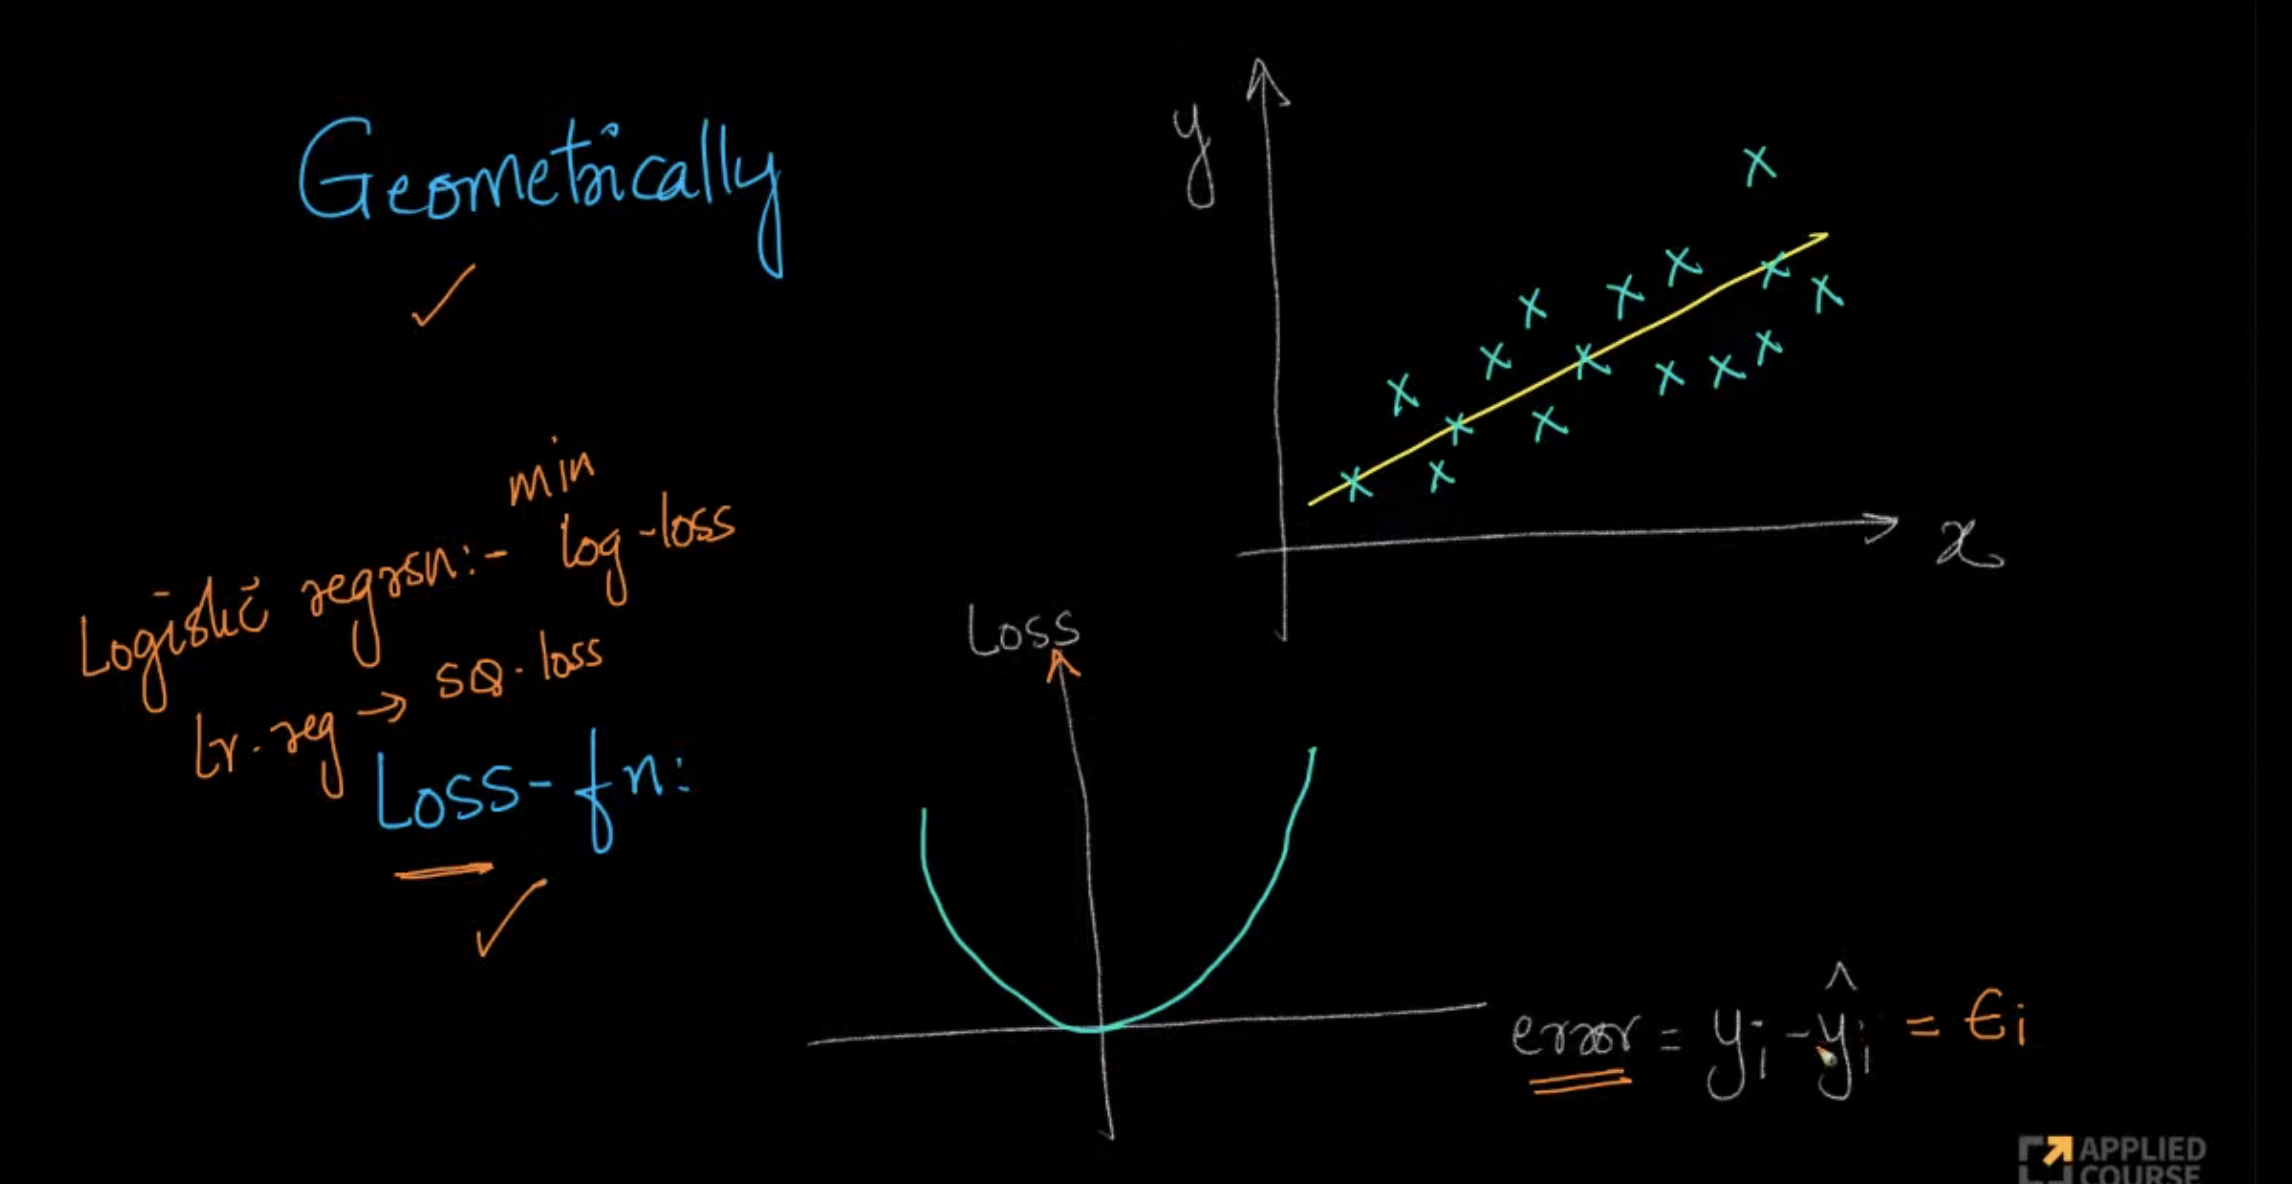 Geometrically
y
x
min
Logistic regrsn:- log-loss
Lr.reg → sq.loss
Loss-fn:
Loss
error = yi - ŷi = ϵi
APPLIED
COURSE